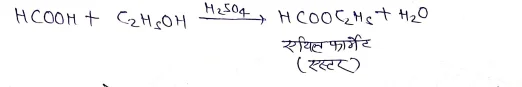 HCOOH + C₂H₅OH —H₂SO₄→ HCOOC₂H₅ + H₂O
एथिल फार्मेट
(एस्टर)